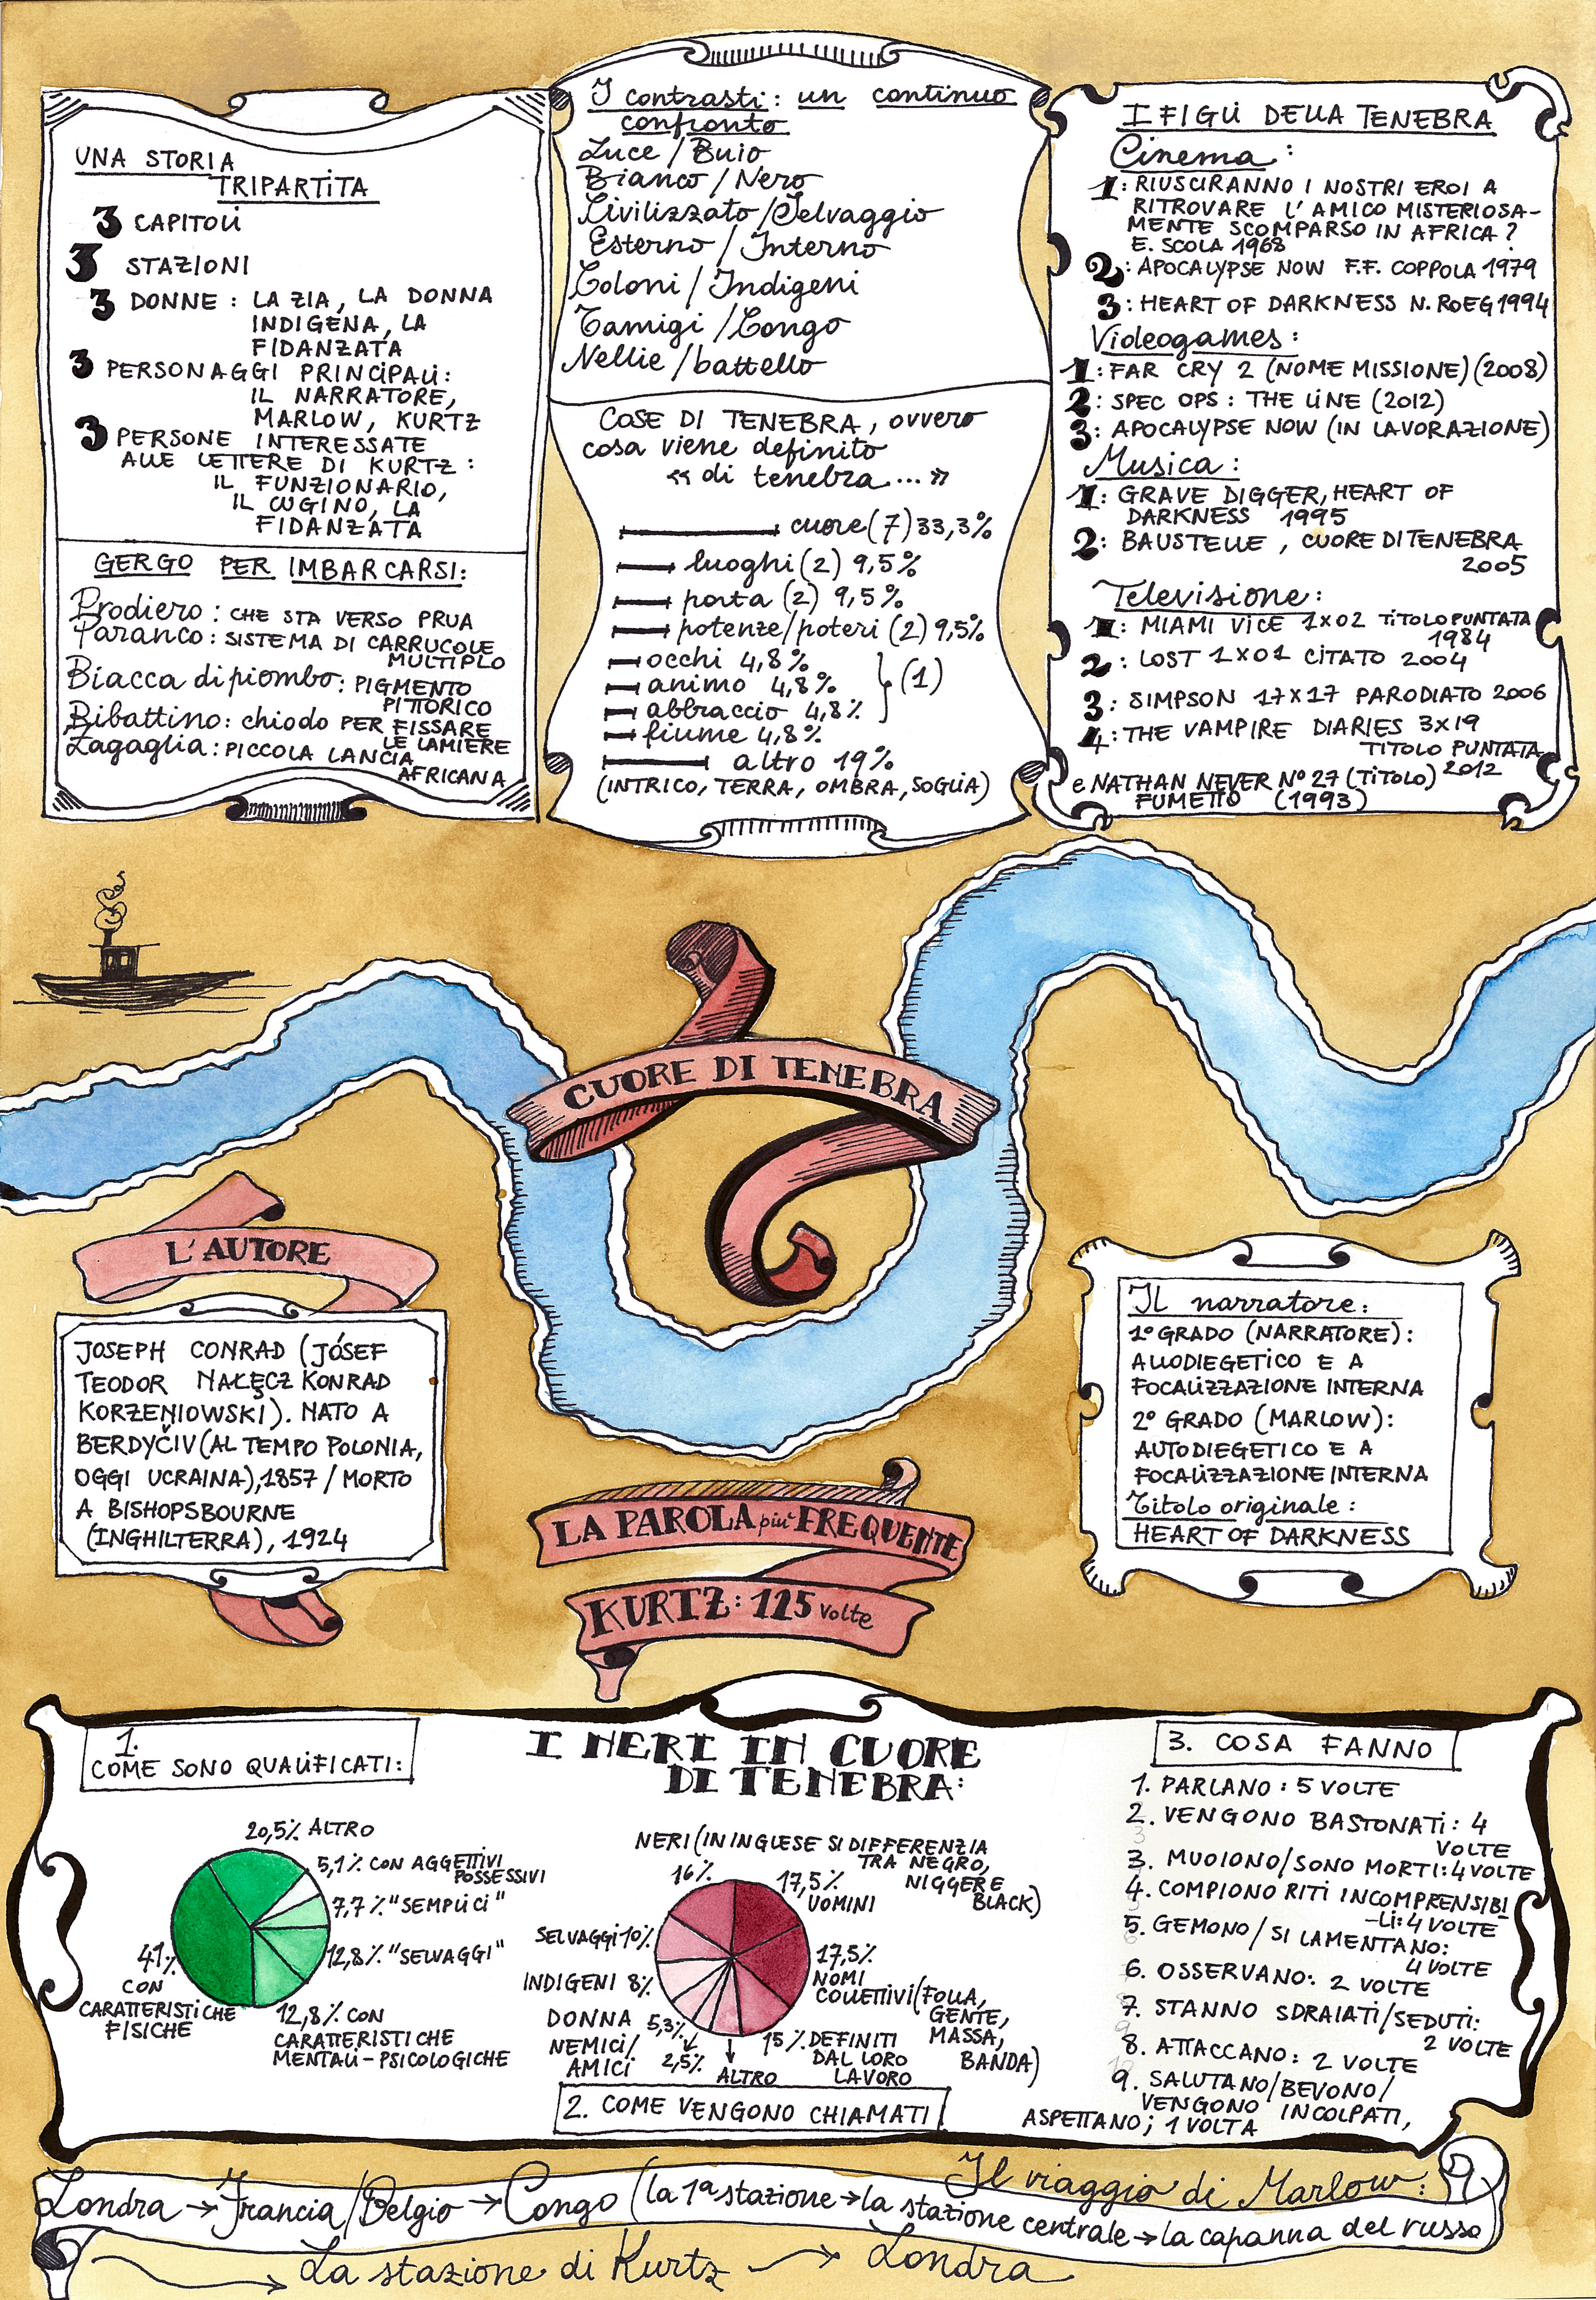 UNA STORIA
TRIPARTITA
3 CAPITOLI
3 STAZIONI
3 DONNE : LA ZIA, LA DONNA
INDIGENA, LA
FIDANZATA
3 PERSONAGGI PRINCIPALI:
IL NARRATORE,
MARLOW, KURTZ
3 PERSONE INTERESSATE
ALLE LETTERE DI KURTZ :
IL FUNZIONARIO,
IL CUGINO, LA
FIDANZATA
GERGO PER IMBARCARSI:
Prodiero : CHE STA VERSO PRUA
Paranco : SISTEMA DI CARRUCOLE
MULTIPLO
Biacca di piombo : PIGMENTO
PITTORICO
Ribattino : chiodo PER FISSARE
LE LAMIERE
Zagaglia : PICCOLA LANCIA
AFRICANA
I contrasti : un continuo
confronto
Luce / Buio
Bianco / Nero
Civilizzato / Selvaggio
Esterno / Interno
Coloni / Indigeni
Tamigi / Congo
Nellie / battello
COSE DI TENEBRA, ovvero
cosa viene definito
« di tenebra... »
cuore (7) 33,3%
luoghi (2) 9,5%
porta (2) 9,5%
potenze/poteri (2) 9,5%
occhi 4,8%
animo 4,8% } (1)
abbraccio 4,8%
fiume 4,8%
altro 19%
(INTRICO, TERRA, OMBRA, SOGLIA)
I FIGLI DELLA TENEBRA
Cinema :
1: RIUSCIRANNO I NOSTRI EROI A
RITROVARE L'AMICO MISTERIOSA-
MENTE SCOMPARSO IN AFRICA ?
E. SCOLA 1968
2: APOCALYPSE NOW F.F. COPPOLA 1979
3: HEART OF DARKNESS N. ROEG 1994
Videogames :
1: FAR CRY 2 (NOME MISSIONE) (2008)
2: SPEC OPS : THE LINE (2012)
3: APOCALYPSE NOW (IN LAVORAZIONE)
Musica :
1: GRAVE DIGGER, HEART OF
DARKNESS 1995
2: BAUSTELLE , CUORE DI TENEBRA
2005
Televisione :
1: MIAMI VICE 1x02 TITOLO PUNTATA
1984
2: LOST 1x01 CITATO 2004
3: SIMPSON 17x17 PARODIATO 2006
4: THE VAMPIRE DIARIES 3x19
TITOLO PUNTATA
2012
e NATHAN NEVER N° 27 (TITOLO)
FUMETTO (1993)
CUORE DI TENEBRA
L'AUTORE
JOSEPH CONRAD (JÓSEF
TEODOR NAŁĘCZ KONRAD
KORZENIOWSKI). NATO A
BERDYČIV (AL TEMPO POLONIA,
OGGI UCRAINA), 1857 / MORTO
A BISHOPSBOURNE
(INGHILTERRA), 1924
Il narratore :
1° GRADO (NARRATORE) :
ALLODIEGETICO E A
FOCALIZZAZIONE INTERNA
2° GRADO (MARLOW) :
AUTODIEGETICO E A
FOCALIZZAZIONE INTERNA
Titolo originale :
HEART OF DARKNESS
LA PAROLA più FREQUENTE
KURTZ : 125 volte
I NERI IN CUORE
DI TENEBRA:
1.
COME SONO QUALIFICATI:
20,5% ALTRO
5,1% CON AGGETTIVI
POSSESSIVI
7,7% "SEMPLICI"
12,8% "SELVAGGI"
12,8% CON
CARATTERISTICHE
MENTALI - PSICOLOGICHE
41%
CON
CARATTERISTICHE
FISICHE
NERI (IN INGLESE SI DIFFERENZIA
TRA NEGRO,
NIGGER E
BLACK)
16%
17,5%
UOMINI
17,5%
NOMI
COLLETTIVI (FOLLA,
GENTE,
MASSA,
BANDA)
15% DEFINITI
DAL LORO
LAVORO
ALTRO
2,5%
NEMICI/
AMICI
DONNA 5,3%
INDIGENI 8%
SELVAGGI 10%
2. COME VENGONO CHIAMATI
3. COSA FANNO
1. PARLANO : 5 VOLTE
2. VENGONO BASTONATI : 4
VOLTE
3. MUOIONO/SONO MORTI : 4 VOLTE
4. COMPIONO RITI INCOMPRENSIBI
-LI : 4 VOLTE
5. GEMONO / SI LAMENTANO :
4 VOLTE
6. OSSERVANO : 2 VOLTE
7. STANNO SDRAIATI/SEDUTI :
2 VOLTE
8. ATTACCANO : 2 VOLTE
9. SALUTANO/BEVONO/
VENGONO INCOLPATI,
ASPETTANO ; 1 VOLTA
Il viaggio di Marlow :
Londra → Francia/Belgio → Congo (la 1ª stazione → la stazione centrale → la capanna del russo)
→ La stazione di Kurtz → Londra